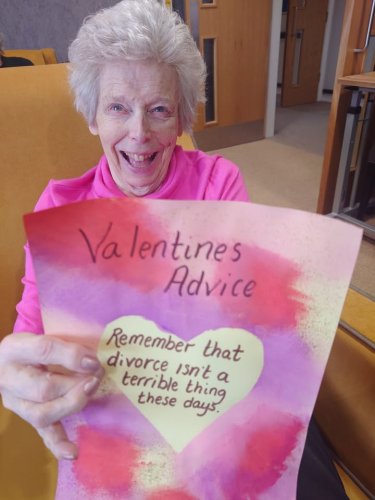 Valentines
Advice
Remember that
divorce isn't a
terrible thing
these days.